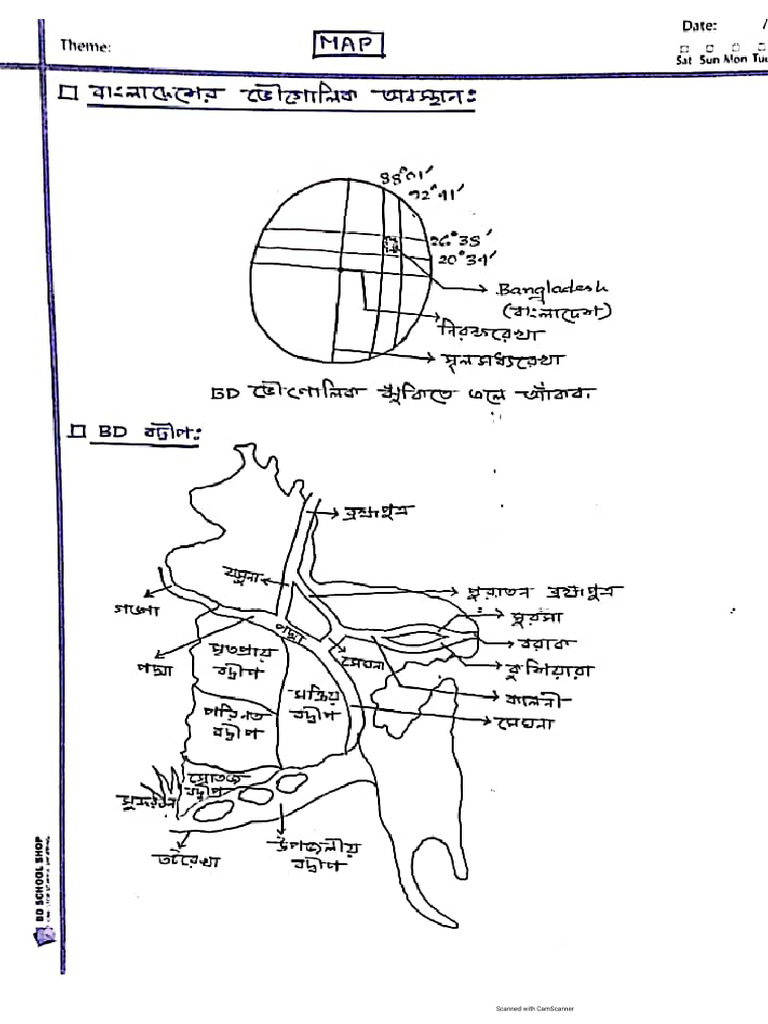 Date: /
Theme:
MAP
Sat Sun Mon Tue
বাংলাদেশের ভৌগোলিক অবস্থান:
88°01'
92°41'
26°38'
20°34'
Bangladesh
(বাংলাদেশ)
নিরক্ষরেখা
মূলমধ্যরেখা
BD ভৌগোলিক ঝুঁকিতে
BD বদ্বীপ:
ব্রহ্মপুত্র
যমুনা
পুরাতন ব্রহ্মপুত্র
গঙ্গা
সুরমা
পদ্মা
বরাক
মৃতপ্রায়
বদ্বীপ
মেঘনা
কুশিয়ারা
পদ্মা
সক্রিয়
বদ্বীপ
কালনী
পরিনত
বদ্বীপ
মেঘনা
স্রোতজ
বদ্বীপ
সুন্দরবন
তটরেখা
উপকূলীয়
বদ্বীপ
BD SCHOOL SHOP
Scanned with CamScanner